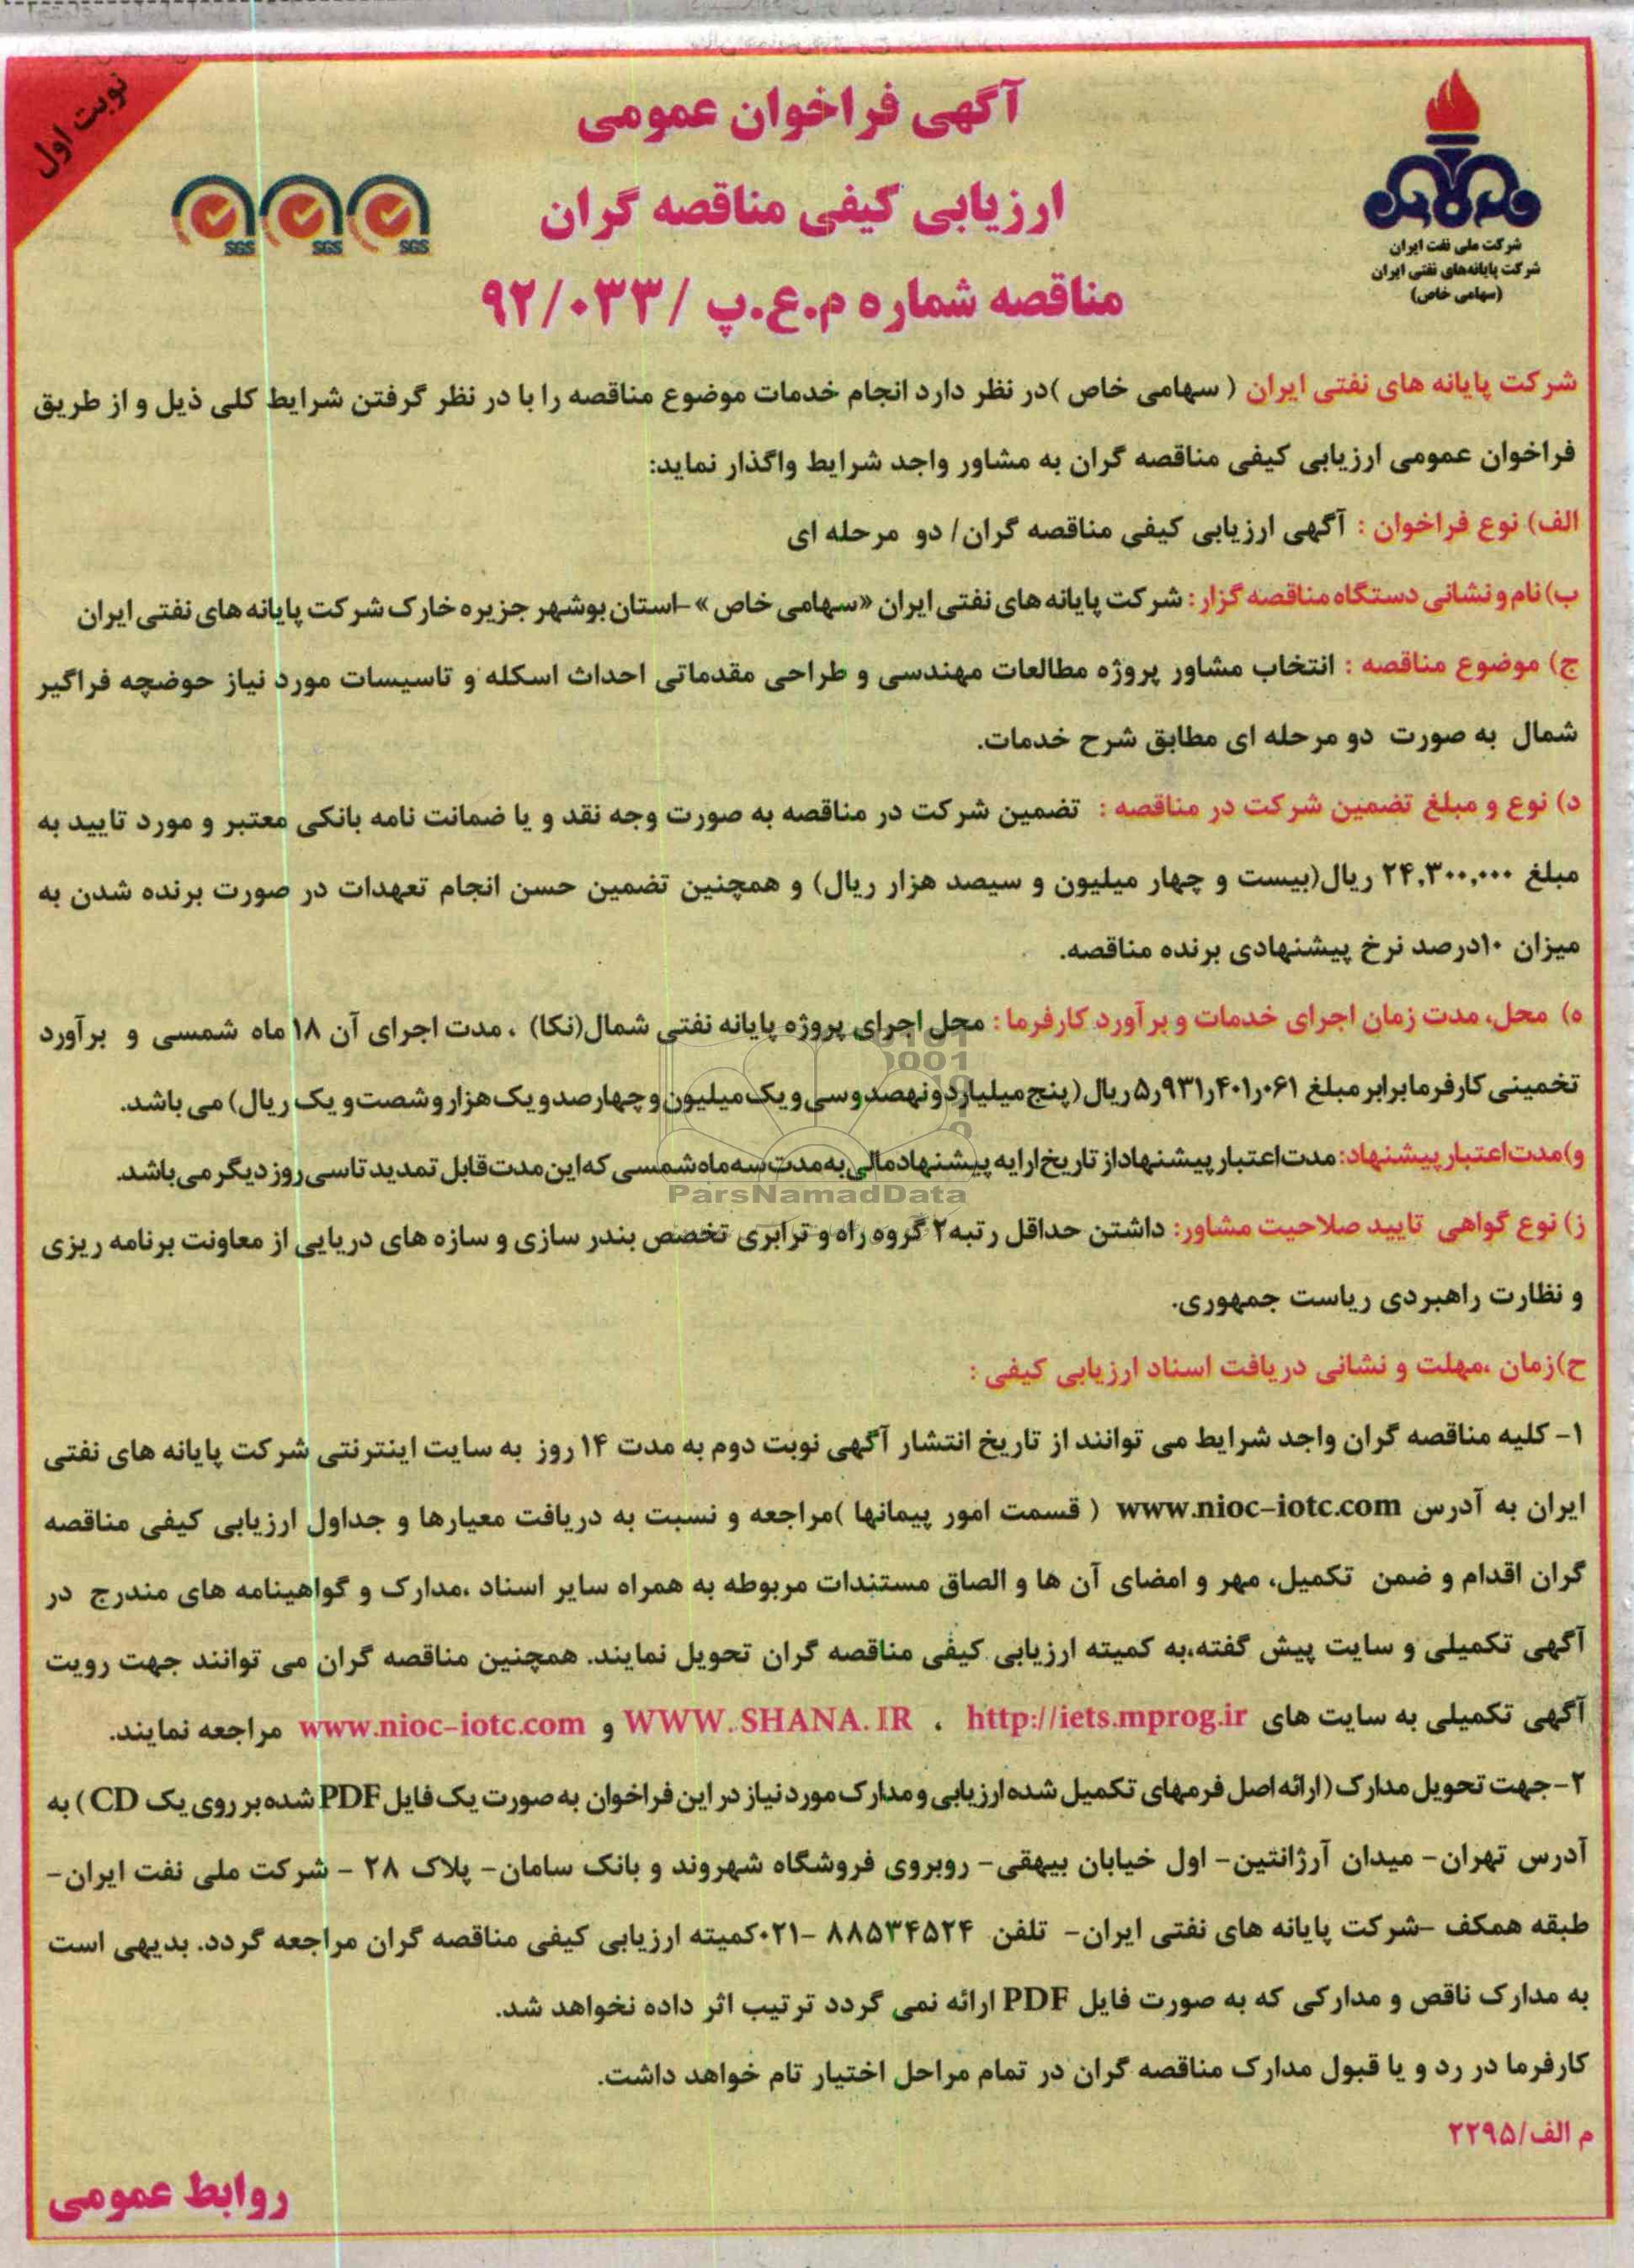 نوبت اول
آگهی فراخوان عمومی
ارزیابی کیفی مناقصه گران
مناقصه شماره م.ع.پ /۹۲/۰۳۳
SGS SGS SGS
شرکت ملی نفت ایران
شرکت پایانه‌های نفتی ایران
(سهامی خاص)
شرکت پایانه های نفتی ایران ( سهامی خاص )در نظر دارد انجام خدمات موضوع مناقصه را با در نظر گرفتن شرایط کلی ذیل و از طریق
فراخوان عمومی ارزیابی کیفی مناقصه گران به مشاور واجد شرایط واگذار نماید:
الف) نوع فراخوان : آگهی ارزیابی کیفی مناقصه گران/ دو مرحله ای
ب) نام و نشانی دستگاه مناقصه گزار : شرکت پایانه های نفتی ایران «سهامی خاص» -استان بوشهر جزیره خارک شرکت پایانه های نفتی ایران
ج) موضوع مناقصه : انتخاب مشاور پروژه مطالعات مهندسی و طراحی مقدماتی احداث اسکله و تاسیسات مورد نیاز حوضچه فراگیر
شمال به صورت دو مرحله ای مطابق شرح خدمات.
د) نوع و مبلغ تضمین شرکت در مناقصه : تضمین شرکت در مناقصه به صورت وجه نقد و یا ضمانت نامه بانکی معتبر و مورد تایید به
مبلغ ۲۴,۳۰۰,۰۰۰ ریال(بیست و چهار میلیون و سیصد هزار ریال) و همچنین تضمین حسن انجام تعهدات در صورت برنده شدن به
میزان ۱۰درصد نرخ پیشنهادی برنده مناقصه.
ه) محل، مدت زمان اجرای خدمات و برآورد کارفرما : محل اجرای پروژه پایانه نفتی شمال(نکا) ، مدت اجرای آن ۱۸ ماه شمسی و برآورد
تخمینی کارفرما برابر مبلغ ۵ر۹۳۱ر۴۰۱ر۰۶۱ ریال ( پنج میلیارد و نهصد و سی و یک میلیون و چهار صد و یک هزار و شصت و یک ریال) می باشد.
و)مدت اعتبار پیشنهاد: مدت اعتبار پیشنهاد از تاریخ ارایه پیشنهاد مالی به مدت سه ماه شمسی که این مدت قابل تمدید تا سی روز دیگر می باشد.
ParsNamadData
ز) نوع گواهی تایید صلاحیت مشاور: داشتن حداقل رتبه۲ گروه راه و ترابری تخصص بندر سازی و سازه های دریایی از معاونت برنامه ریزی
و نظارت راهبردی ریاست جمهوری.
ح)زمان ،مهلت و نشانی دریافت اسناد ارزیابی کیفی :
۱- کلیه مناقصه گران واجد شرایط می توانند از تاریخ انتشار آگهی نوبت دوم به مدت ۱۴ روز به سایت اینترنتی شرکت پایانه های نفتی
ایران به آدرس www.nioc-iotc.com ( قسمت امور پیمانها )مراجعه و نسبت به دریافت معیارها و جداول ارزیابی کیفی مناقصه
گران اقدام و ضمن تکمیل، مهر و امضای آن ها و الصاق مستندات مربوطه به همراه سایر اسناد ،مدارک و گواهینامه های مندرج در
آگهی تکمیلی و سایت پیش گفته،به کمیته ارزیابی کیفی مناقصه گران تحویل نمایند. همچنین مناقصه گران می توانند جهت رویت
آگهی تکمیلی به سایت های http://iets.mprog.ir ، WWW.SHANA.IR و www.nioc-iotc.com مراجعه نمایند.
۲-جهت تحویل مدارک ( ارائه اصل فرمهای تکمیل شده ارزیابی و مدارک مورد نیاز در این فراخوان به صورت یک فایل PDF شده بر روی یک CD ) به
آدرس تهران- میدان آرژانتین- اول خیابان بیهقی- روبروی فروشگاه شهروند و بانک سامان- پلاک ۲۸ - شرکت ملی نفت ایران-
طبقه همکف -شرکت پایانه های نفتی ایران- تلفن ۸۸۵۳۴۵۲۴ -۰۲۱کمیته ارزیابی کیفی مناقصه گران مراجعه گردد. بدیهی است
به مدارک ناقص و مدارکی که به صورت فایل PDF ارائه نمی گردد ترتیب اثر داده نخواهد شد.
کارفرما در رد و یا قبول مدارک مناقصه گران در تمام مراحل اختیار تام خواهد داشت.
م الف/۲۲۹۵
روابط عمومی